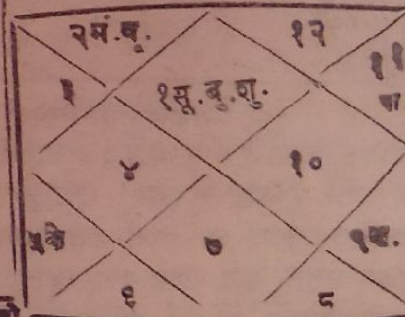 २ मं. बृ. १२
३ १ सू. बु. शु. ११
रा
४ १०
५ के ७ ९ च.
६ ८